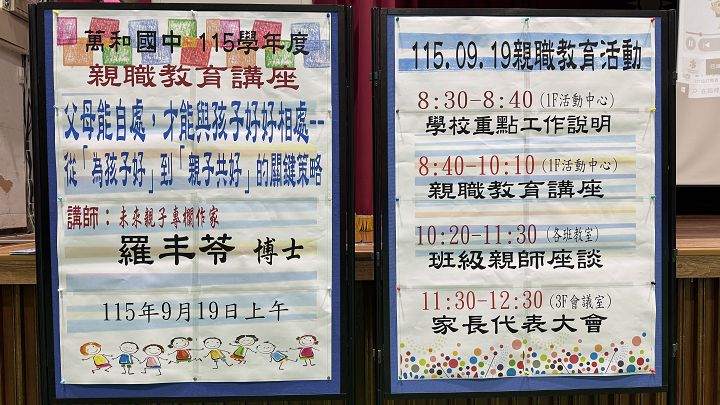 萬和國中 115學年度
親職教育講座
父母能自處，才能與孩子好好相處--
從「為孩子好」到「親子共好」的關鍵策略
講師：未來親子專欄作家
羅丰苓 博士
115年9月19日上午
115.09.19親職教育活動
8:30-8:40(1F活動中心)
學校重點工作說明
8:40-10:10(1F活動中心)
親職教育講座
10:20-11:30(各班教室)
班級親師座談
11:30-12:30(3F會議室)
家長代表大會